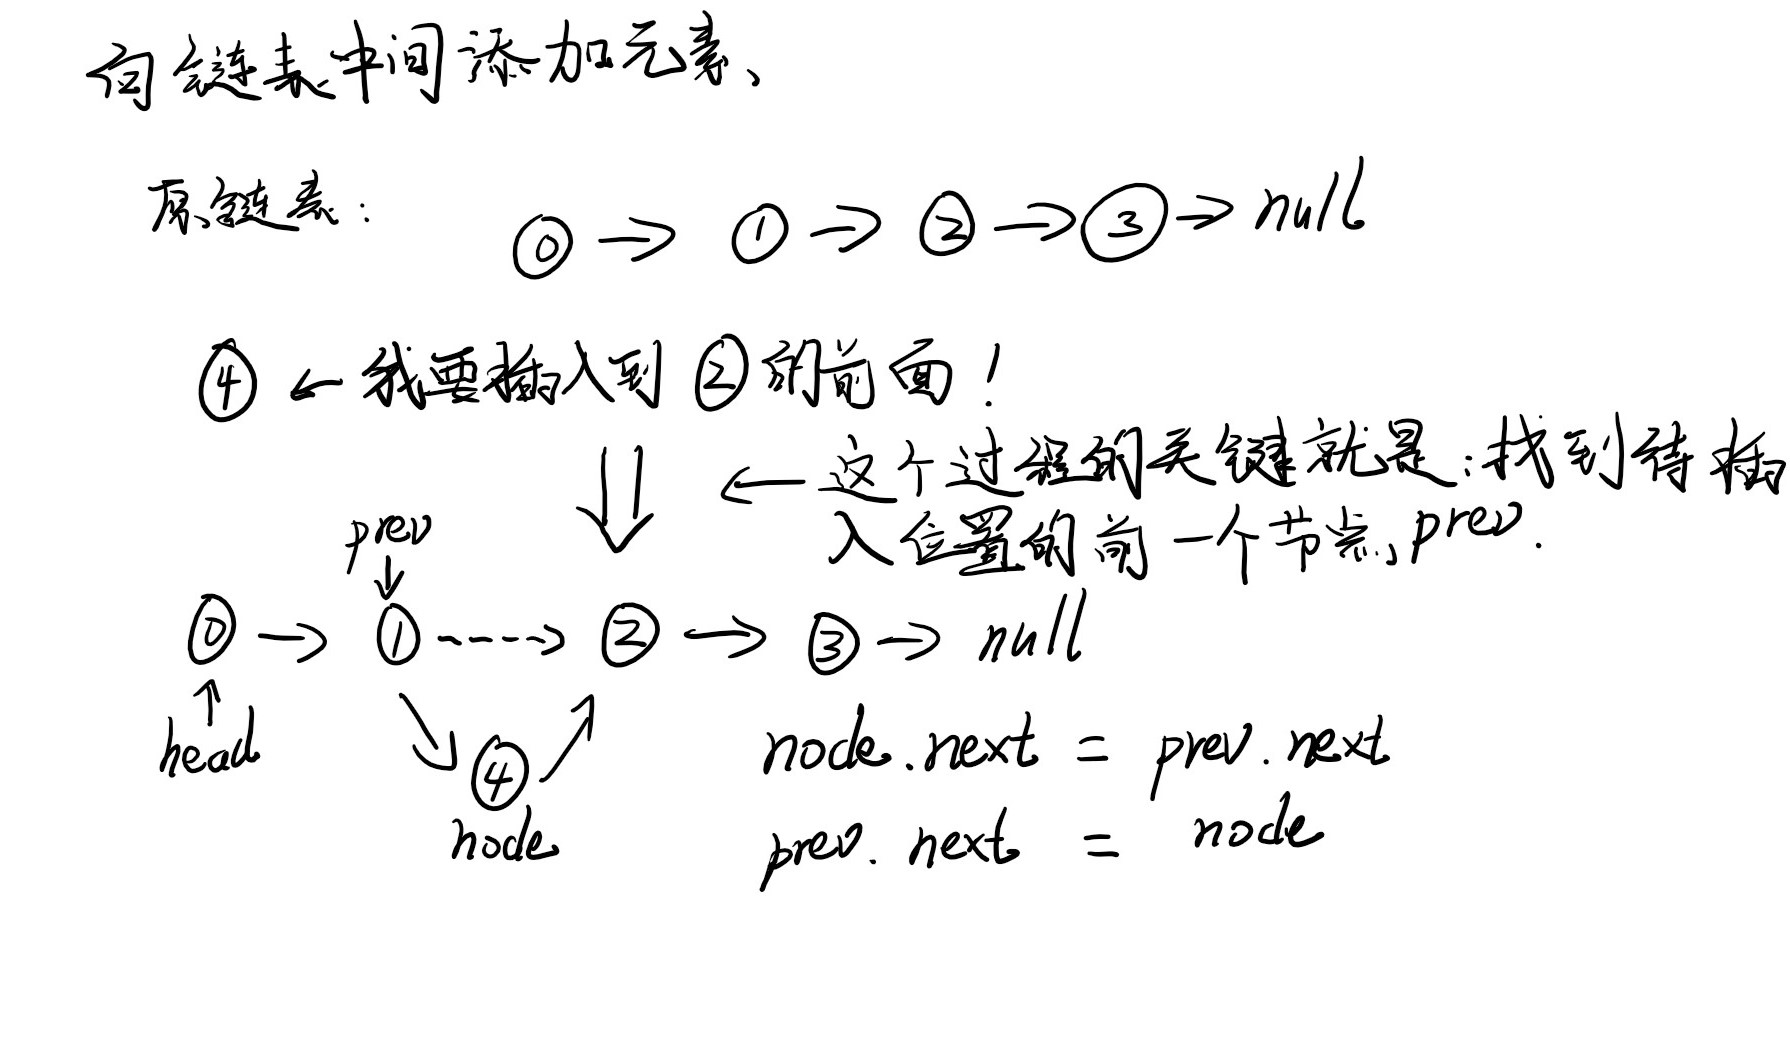 向链表中间添加元素、
原链表：
⓪ → ① → ② → ③ → null
④ ← 我要插入到 ② 的前面！
← 这个过程的关键就是：找到待插
入位置的前一个节点，prev.
prev
⓪ → ① ----> ② → ③ → null
head
④
node
node.next = prev.next
prev.next = node